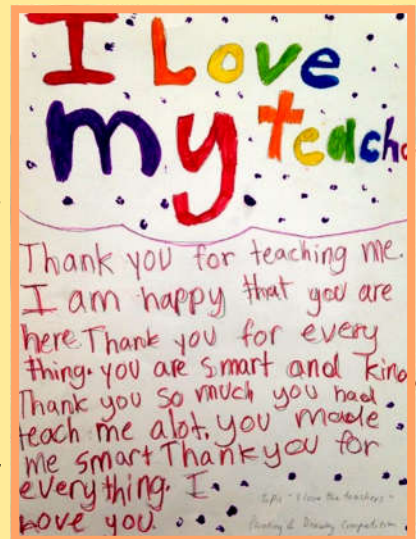 I Love
my teach
Thank you for teaching me.
I am happy that you are
here. Thank you for every
thing. you are smart and kind
Thank you so much you had
teach me alot. you made
me smart Thank you for
everything. I
Love you.
"I love the teachers"
Painting & Drawing Competition